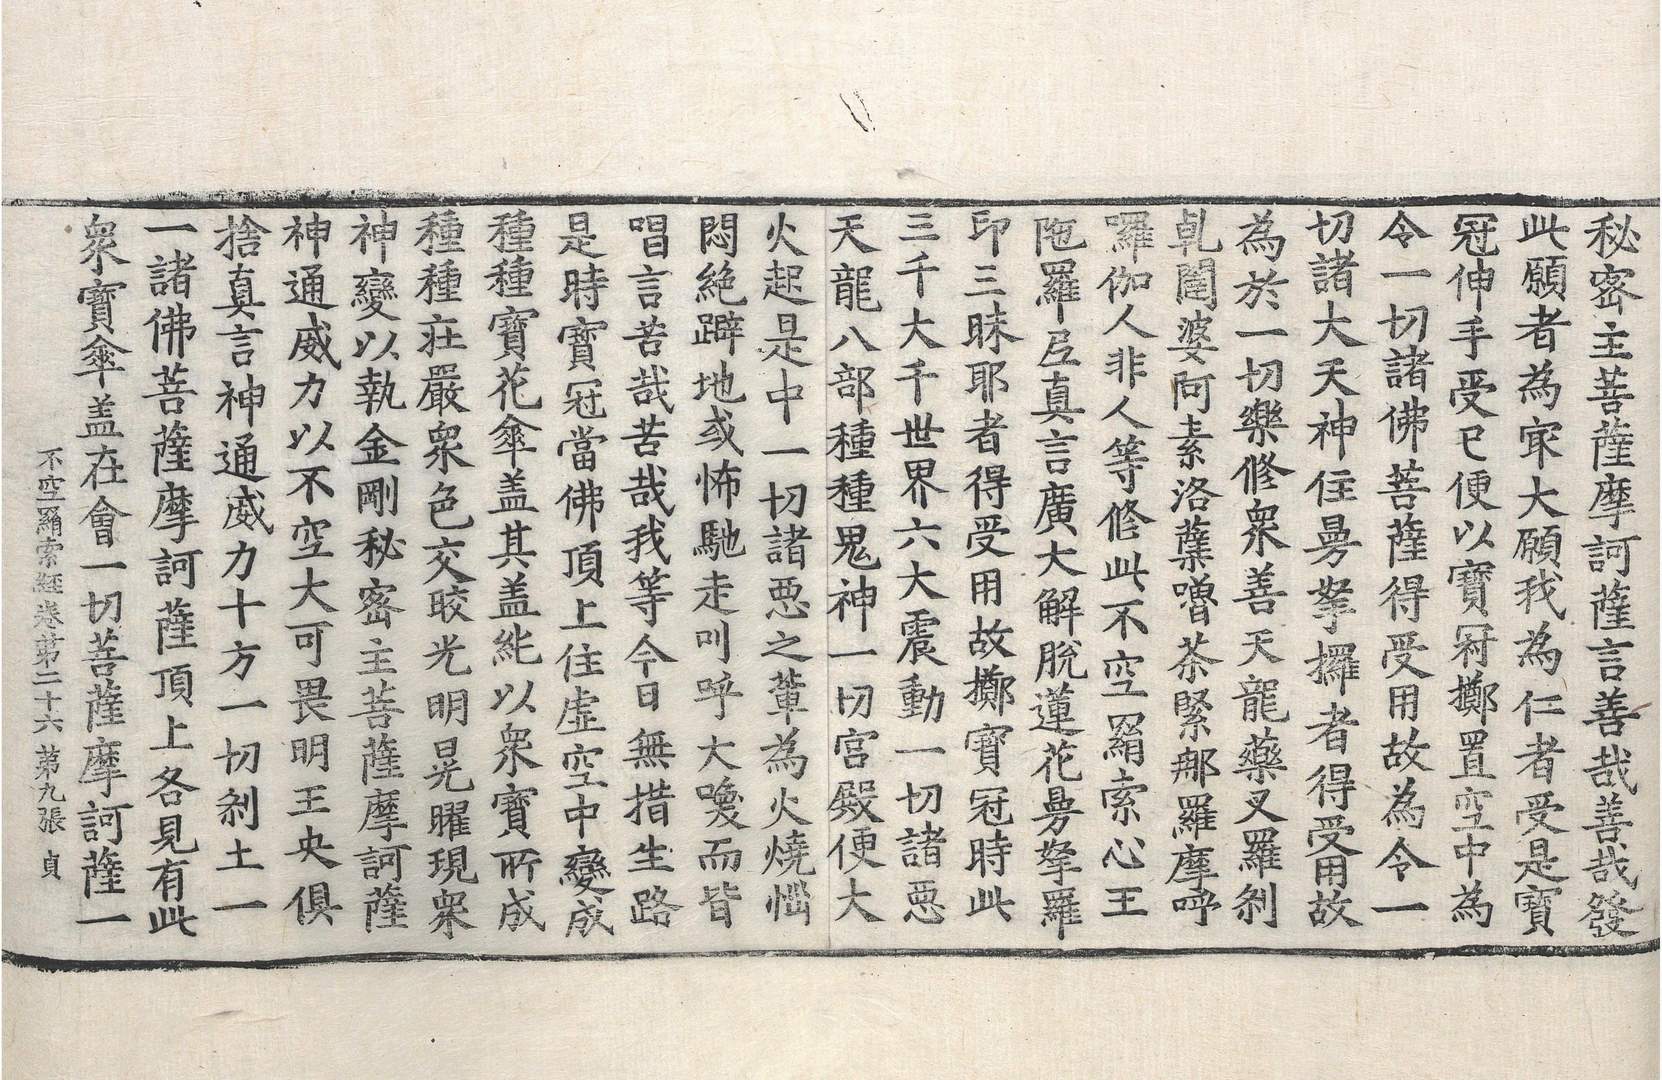 秘密主菩薩摩訶薩言善哉善哉發
此願者為㝡大願我為仁者受是寶
冠伸手受已便以寶冠擲置空中為
令一切諸佛菩薩得受用故為令一
切諸大天神住曼拏攞者得受用故
為於一切樂修衆善天龍藥叉羅刹
乹闥婆阿素洛蘖嚕荼緊那羅摩呼
囉伽人非人等修此不空羂索心王
陁羅尼真言廣大解脫蓮花曼拏羅
印三昧耶者得受用故擲寶冠時此
三千大千世界六大震動一切諸惡
天龍八部種種鬼神一切宮殿便大
火起是中一切諸惡之輩為火燒惱
悶絶躃地或怖馳走叫呼大喚而皆
唱言苦哉苦哉我等今日無措生路
是時寶冠當佛頂上住虛空中變成
種種寶花傘盖其盖能以衆寶所成
種種莊嚴衆色交皎光明晃曜現衆
神變以執金剛秘密主菩薩摩訶薩
神通威力以不空大可畏明王央俱
捨真言神通威力十方一切刹土一
一諸佛菩薩摩訶薩頂上各見有此
衆寶傘盖在會一切菩薩摩訶薩一
不空羂索經卷第二十六 第九張 貞